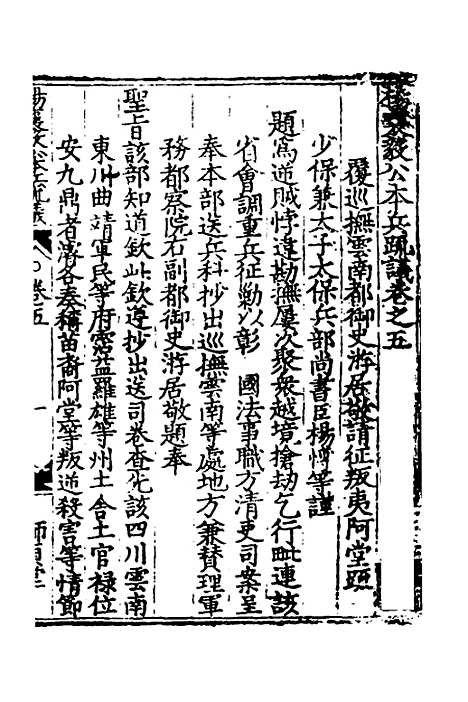 楊襄毅公本兵疏議卷之五
覆巡撫雲南都御史游居敬請征叛夷阿堂疏
少保兼太子太保兵部尚書臣楊博等謹
題為逆賊悖違勘撫屢次聚眾越境搶劫乞行毗連該
省會調重兵征勦以彰國法事職方清吏司案呈
奉本部送兵科抄出巡撫雲南等處地方兼贊理軍
務都察院右副都御史游居敬題奉
聖旨該部知道欽此欽遵抄出送司卷查先該四川雲南
東川曲靖軍民等府霑益羅雄等州土舍土官祿位
安九鼎者濬各奏稱苗裔阿堂等叛逆殺害等情節
卷五
一